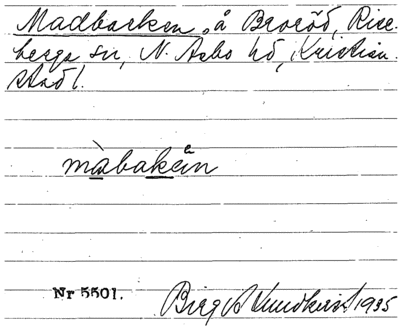 Madbacken, å Broröd, Rise-
berga sn, N. Åsbo hd, Kristian-
stads l.
màbakeⁿn
Nr 5501.
Birgit Lundkvist 1935